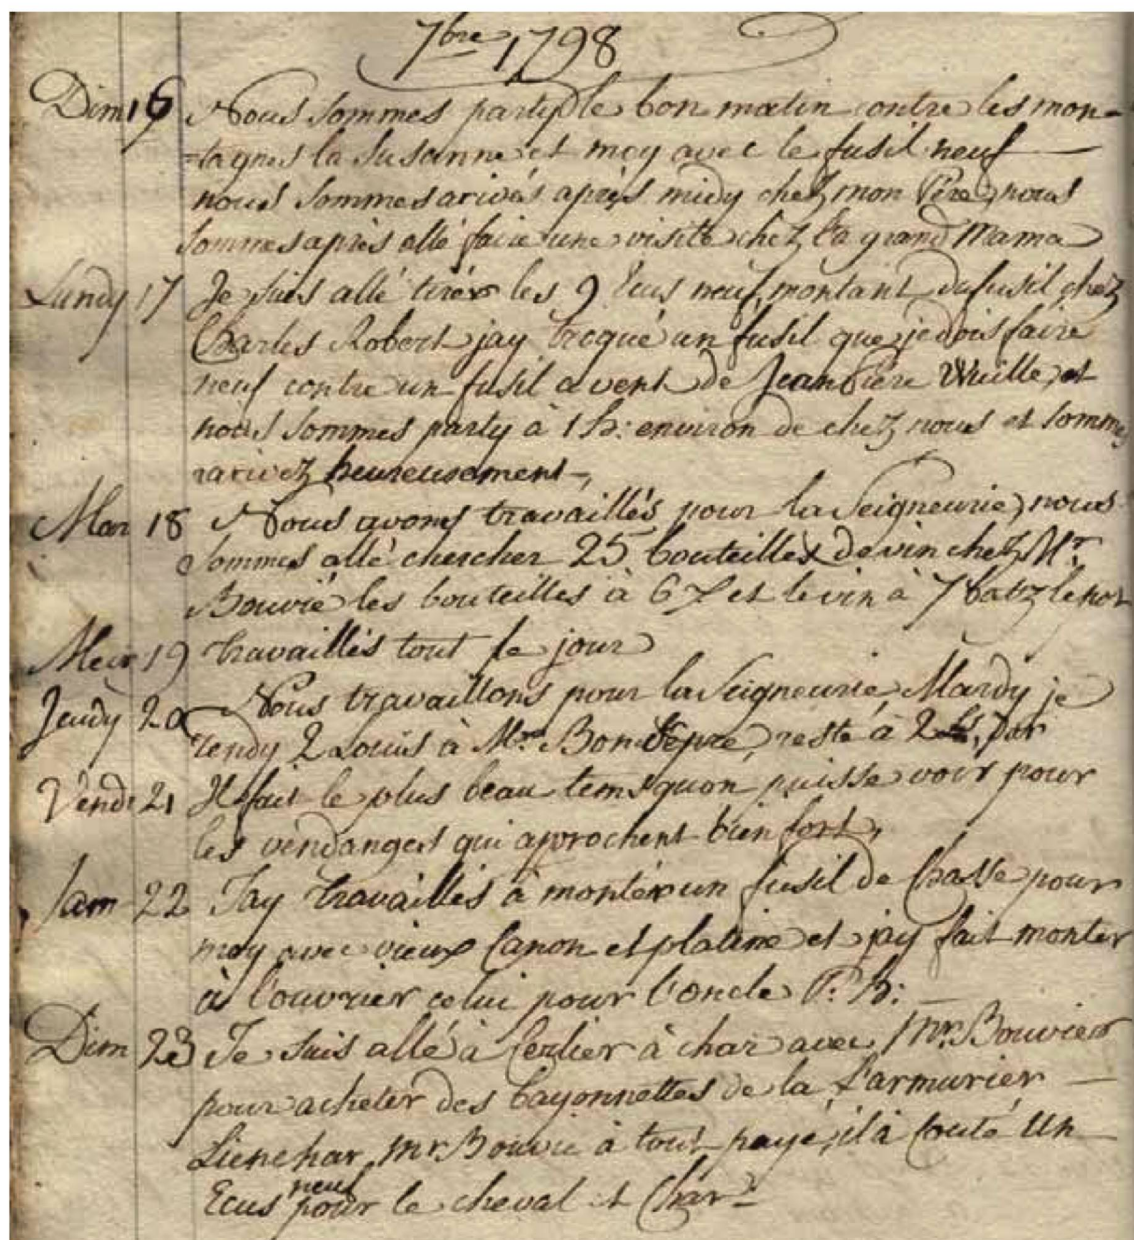 7bre 1798
Dim 16 Nous sommes party le bon matin contre les mon-
=tagnes la Susanne et moy avec le fusil neuf
nous sommes arivés après midy chez mon Père, nous
sommes après allé faire une visite chez la grand Mama
Lundy 17 Je suis allé tirér les 9 Ecus neuf, montant du fusil chez
Charles Robert jay troqué un fusil que je dois faire
neuf contre un fusil a vent de Jean Piere Wuille, et
nous sommes party à 1 h: environ de chez nous et somme
rarivez heureusement,
Mar 18 Nous avons travaillés pour la Seigneurie, nous
sommes allé chercher 25 bouteilles de vin chez Mr
Bouvié les bouteilles à 6 et le vin à 7 batz le pot
Mecr 19 travaillés tout le jour
Jeudy 20 Nous travaillons pour la Seigneurie, Mardy je
rendy 2 Louis à Mr Bondepré, reste à 2 dor
Vend 21 Il fait le plus beau tems quon puisse voir pour
les vendanges qui aprochent bien fort,
Sam 22 Jay travaillés à montér un fusil de Chasse pour
moy avec vieux Canon et platine et jay fait monter
à l'ouvrier celui pour l'oncle P: h:
Dim 23 Je suis allé à Cerlier à char avec Mr. Bouvier
pour acheter des bayonnettes de la l'armurier
Lienchar, mr Bouvié à tout payé, il à Couté Un
Ecus neuf pour le cheval et Char